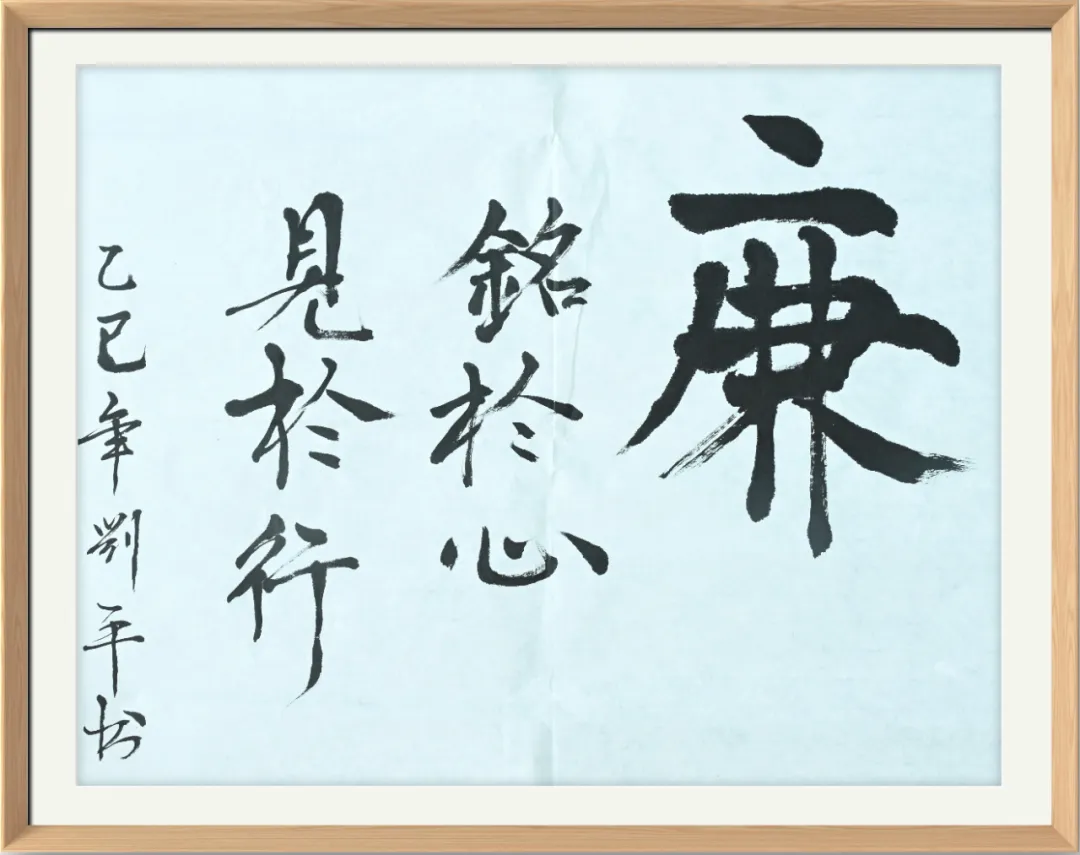 廉
銘於心
見於行
乙巳年劉平书